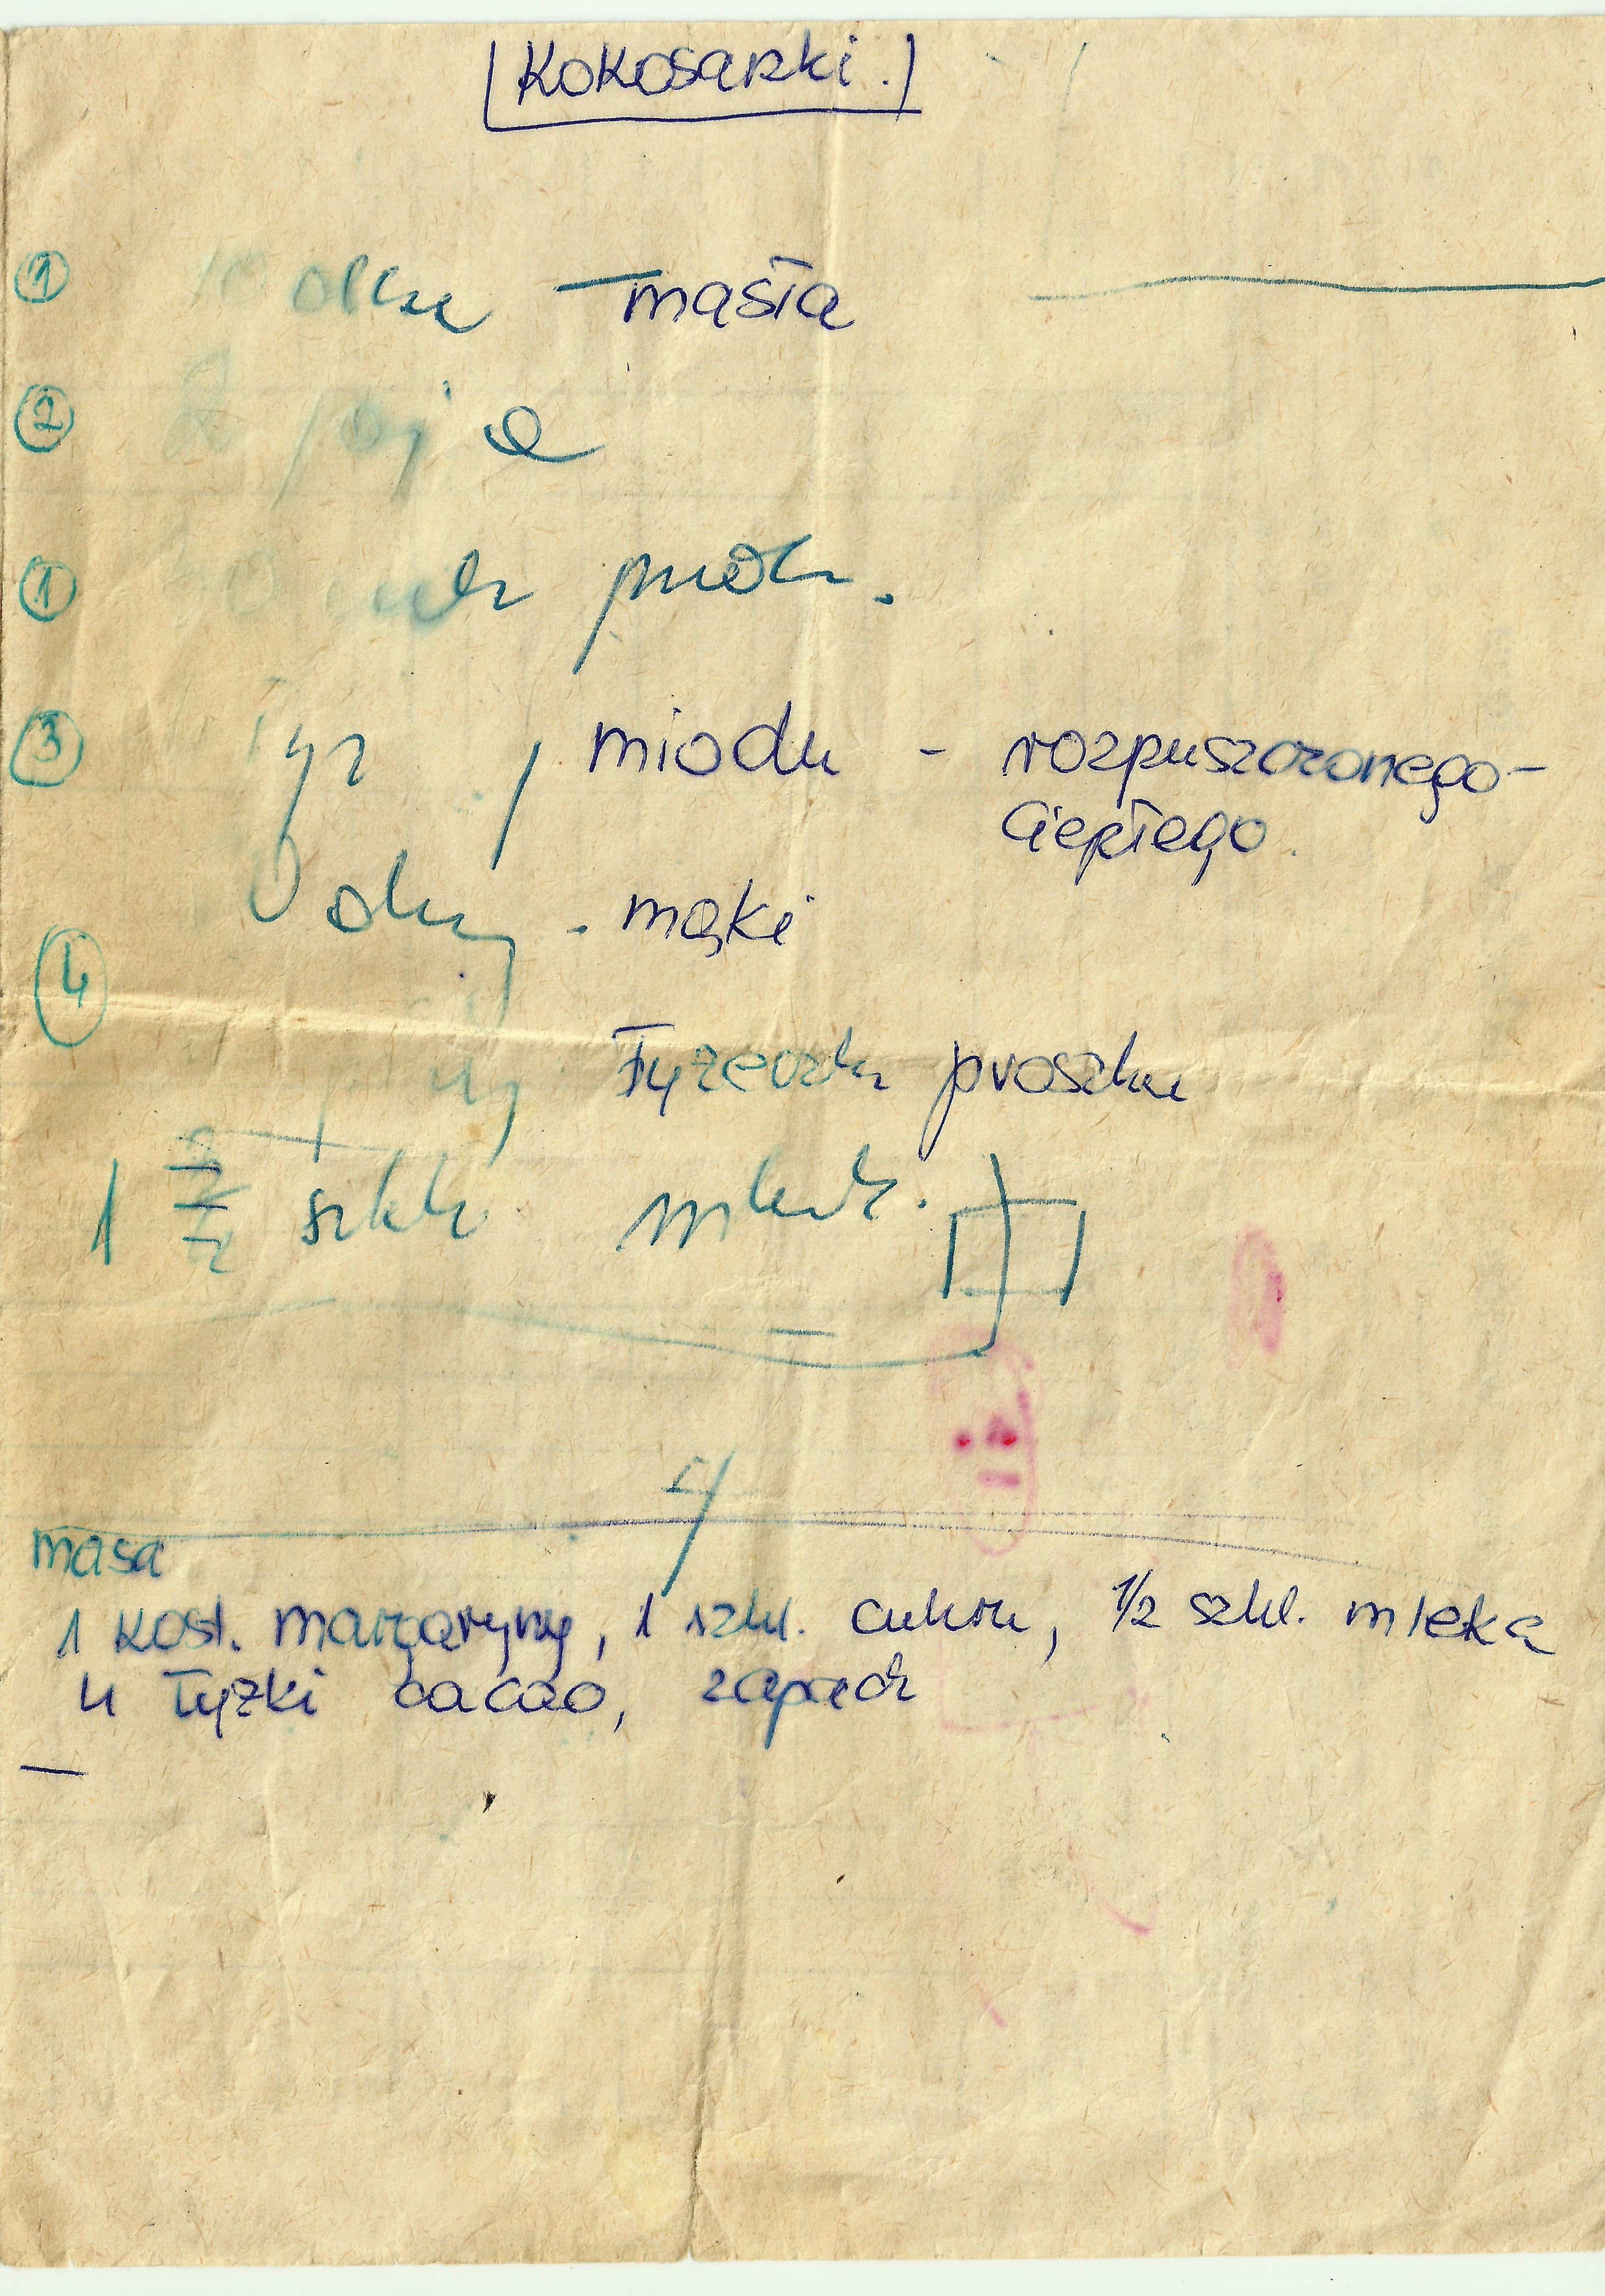 Kokosanki.
① 10 dkg – masła
② jaja
① cukr pudr.
③ łyż miodu – rozpuszczonego –
ciepłego.
④ dkg. mąki
łyżeczka proszku
1 szkl. mleka.
masa
1 kost. margaryny, 1 szkl. cukru, ½ szkl. mleka
4 łyżki cacao, zaparzć